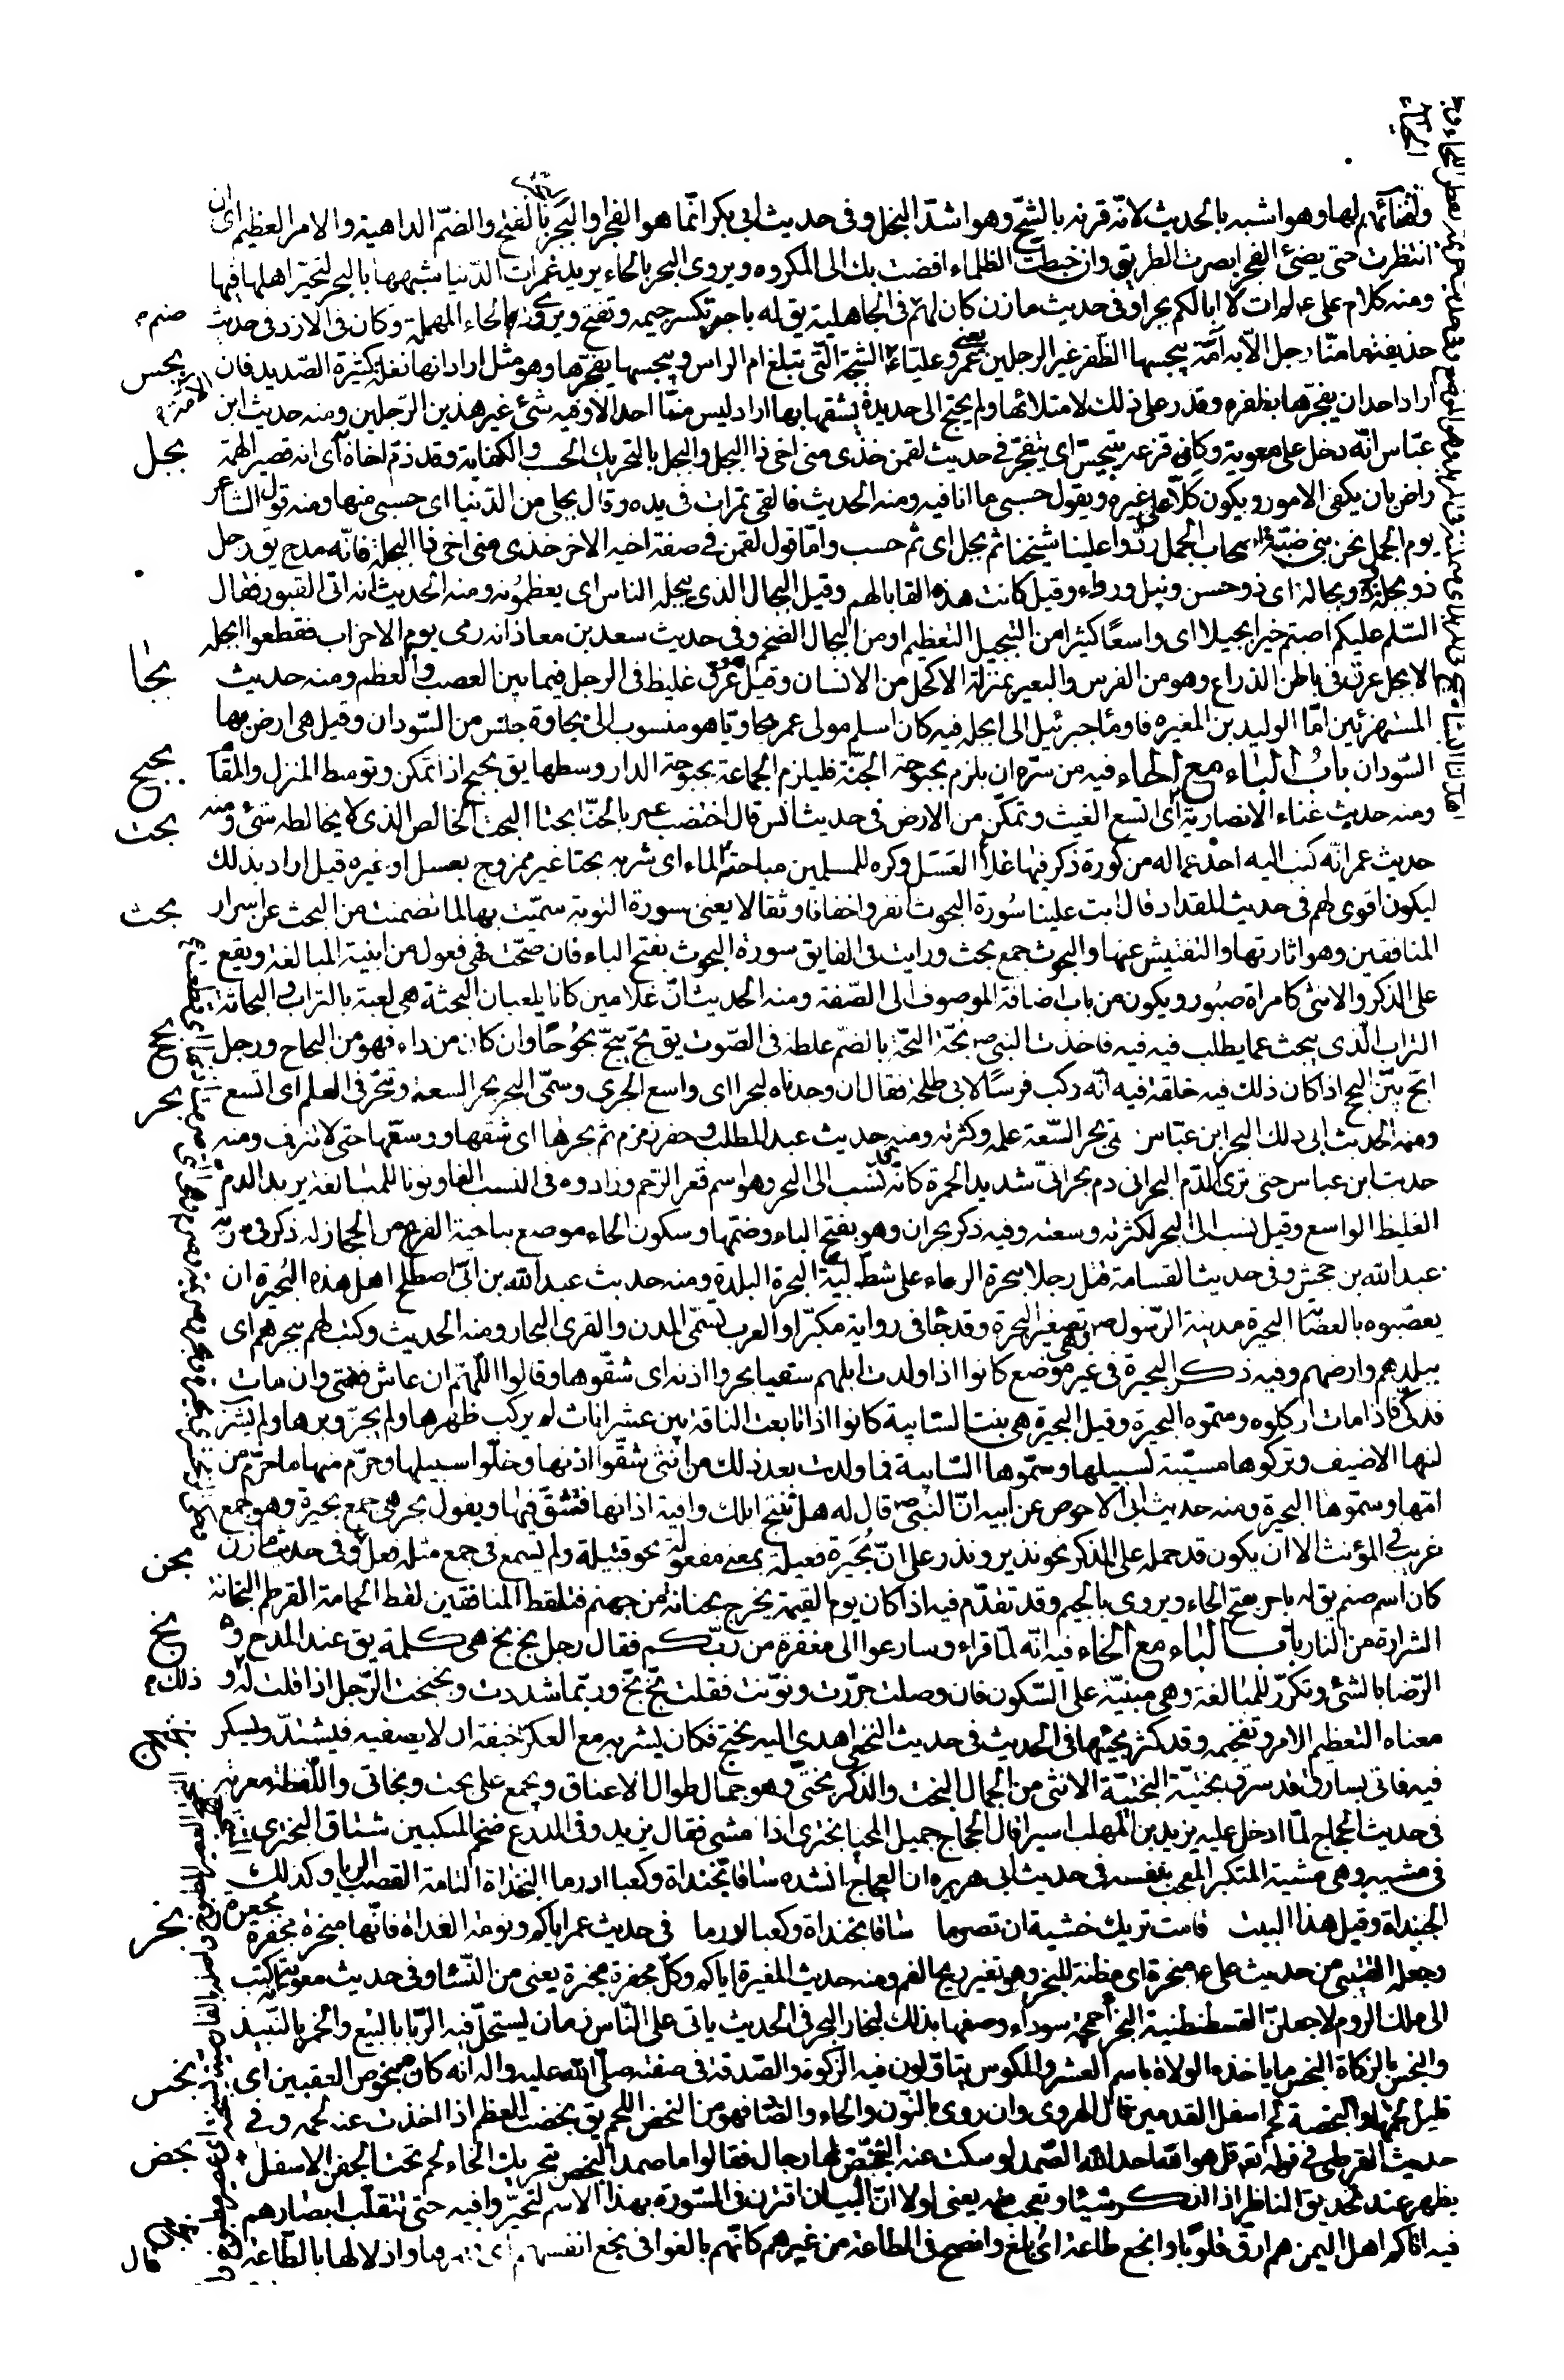 ولثنائهم لها وهو اشبه بالحديث لانّه قرنه بالشحّ وهو اشدّ البخل وفى حديث ابى بكر انّما هو الفجر او البجر بالفتح والضمّ الداهية والامر العظيم اى ان
انتظرت حتى يضئ الفجر ابصرت الطريق وان خبطت الظلماء افضت بك الى المكروه ويروى البحر بالحاء يريد غمرات الدّنيا شبهها بالبحر لتحيّر اهلها فيها
ومنه كلام على ع لم ات لا ابا لكم بجرا وفى حديث مازن كان لهم صنم فى الجاهلية يق له باجر تكسر جيمه وتفتح ويروى بالحاء المهملة وكان فى الازد فى حديث
حذيفة ما منّا رجل الّا به آمّة يبجسها الظفر غير الرجلين يعنى عمر وعليّا الآمّة الشجة الّتى تبلغ ام الراس ويبجسها يفجرها وهو مثل اراد انها نغلة كثيرة الصّديد فان
اراد احد ان يفجّرها بظفره وقدر على ذلك لامتلائها ولم يحتج الى حديدة يشقها بها اراد ليس منّا احد الّا وفيه شئ غير هذين الرّجلين ومنه حديث ابن
عبّاس انّه دخل على معوية وكانه قزعة يتبجّس اى يتفجّر فى حديث لقمن خذى منى اخى ذا البجل والبجل بالتحريك الحسب والكفاية وقد ذمّ اخاه اى انه قصير الهمّة
راض بان يكفى الامور ويكون كلّا على غيره ويقول حسبى ما انا فيه ومنه الحديث فالقى تمرات فى يده وقال بجلى من الدّنيا اى حسبى منها ومنه قول الشاعر
يوم الجمل نحن بنى ضبّة اصحاب الجمل ردّوا علينا شيخنا ثم بجل اى ثم حسب وامّا قول لقمن فى صفة اخيه الاخر خذى منى اخى ذا البجلة فانّه مدح يق رجل
ذو بجلة وبجالة اى ذو حسن ونبل ورواء وقيل كانت هذه القابا لهم وقيل البجال الذى يبجله الناس اى يعظمونه ومنه الحديث انه اتى القبور فقال
السّلم عليكم اصبتم خيرا بجيلا اى واسعًا كثيرا من التبجيل التعظيم او من البجال الضخم وفى حديث سعد بن معاذ انه رمى يوم الاحزاب فقطعوا ابجله
الابجل عرق فى باطن الذراع وهو من الفرس والبعير بمنزلة الاكحل من الانسان وقيل هو عرق غليظ فى الرجل فيما بين العصب والعظم ومنه حديث
المستهزئين امّا الوليد بن المغيرة فاومأ جبرئيل الى ابجله فيه كان اسلم مولى عمر بجاويّا هو منسوب الى بجاوة جنس من السّودان وقيل هى ارض بها
السّودان باب الباء مع الحاء فيه من سرّه ان يلزم بحبوحة الجنّة فليلزم الجماعة بحبوحة الدار وسطها يق بحبح اذا تمكن وتوسط المنزل والمقام
ومنه حديث غناء الانصارية اى اتسع الغيث وتمكّن من الارض فى حديث انس قال اختضب عمر بالحنّا بحتا البحت الخالص الذى لا يخالطه شئ ومنه
حديث عمر انّه كتب اليه احد عماله من كورة ذكر فيها غلاء العسل وكره للمسلمين مباحتة الماء اى شربه بحتا غير ممزوج بعسل او غيره قيل اراد بذلك
ليكون اقوى لهم فى حديث المقداد قال ابت علينا سورة البحوث انفروا خفافا وثقالا يعنى سورة التوبة سمّيت بها لما تضمنت من البحث عن اسرار
المنافقين وهو اثارتها والتفتيش عنها والبحوث جمع بحث ورايت فى الفايق سورة البحوث بفتح الباء فان صحّت فهى فعول من ابنية المبالغة ويقع
على الذكر والانثى كامراة صبور ويكون من باب اضافة الموصوف الى الصّفة ومنه الحديث انّ غلامين كانا يلعبان البحثة هى لعبة بالتراب والبحاثة
التراب الّذى يبحث عما يطلب فيه فيه فاخذت النبى ص بحّة البحّة بالضمّ غلظة فى الصّوت يق بحّ يبحّ بحوحًا وان كان من داء فهو من البحاح ورجل
ابحّ بيّن البحح اذا كان ذلك فيه خلقة فيه انّه ركب فرسًا لابى طلحة فقال ان وجدناه لبحرا اى واسع الجرى وسمّى البحر بحرا لسعته وتبحّر فى العلم اى اتسع
ومنه الحديث ابى ذلك البحر ابن عبّاس سمّى بحرا لسّعة علمه وكثرته ومنه حديث عبد المطلب وحفر زمزم ثم بحرها اى شقها ووسعها حتى لا تنزف ومنه
حديث ابن عباس حتى ترى الدّم البحرانى دم بحرانىّ شديد الحمرة كانّه نسب الى البحر وهو اسم قعر الرّحم وزادوه فى النسب الفا ونونا للمبالغة يريد الدم
الغليظ الواسع وقيل نسب الى البحر لكثرته وسعته وفيه ذكر بحران وهو بفتح الباء وضمّها وسكون الحاء موضع بناحية الفرع من الحجاز له ذكر فى سرية
عبد الله بن جحش وفى حديث القسامة قتل رجلا ببحرة الرعاء على شطّ ليّة البحرة البلدة ومنه حديث عبد الله بن ابىّ اصطلح اهل هذه البحيرة ان
يعصّبوه بالعصابة البحيرة مدينة الرّسول ص وهى تصغير البحرة وقد جا فى رواية مكبّرا والعرب تسمّى المدن والقرى البحار ومنه الحديث وكتب لهم ببحرهم اى
ببلدهم وارضهم وفيه ذكر البحيرة فى غير موضع كانوا اذا ولدت ابلهم سقبا بحروا اذنه اى شقّوها وقالوا اللّهمّ ان عاش ففتى وان مات
فذكىّ فاذا مات اكلوه وسمّوه البحيرة وقيل البحيرة هى بنت السّايبة كانوا اذا تابعت الناقة بين عشر اناث لم يركب ظهرها ولم يجزّ وبرها ولم يشرب
لبنها الا ضيف وتركوها مسيّبة لسبيلها وسمّوها السّايبة فما ولدت بعد ذلك من انثى شقّوا اذنها وخلّوا سبيلها وحرّم منها ما حرّم من
امّها وسمّوها البحيرة ومنه حديث ابى الاحوص عن ابيه انّ النبىّ ص قال له هل تنتج ابلك وافية اذانها فتشقّ فيها ويقول بحر هى جمع بحيرة وهو جمع
غريب فى المؤنث الا ان يكون قد حمله على المذكر نحو نذير ونذر على انّ بحيرة فعيلة بمعنى مفعولة نحو قتيلة ولم يسمع فى جمع مثله فعل وفى حديث مازن
كان اسم صنم يق له باحر بفتح الحاء ويروى بالجيم وقد تقدّم فيه اذا كان يوم القيمة يخرج بحنانة من جهنم فتلقط المنافقين لقط الحمامة القرطم البحنانة
الشرارة من النار باب الباء مع الخاء فيه انّه لمّا قراء وسارعوا الى مغفرة من ربّكم فقال رجل بخ بخ هى كلمة يق عند المدح و
الرّضا بالشئ وتكرّر للمبالغة وهى مبنيّة على السّكون فان وصلت جررت ونوّنت فقلت بخّ بخّ وربّما شددت وبخبخت الرّجل اذا قلت له ذلك و
معناه التعظيم الامر وتفخيمه وقد كثر مجيئها فى الحديث فى حديث النخعى اهدى اليه بختج فكان يشربه مع العكر خيفة ان لا يصفيه فيشتدّ ويسكر
فيه فاتى بسارق قد سرق بختيّة البختيّة الانثى من الجمال البخت والذكر بختىّ وهو جمال طوال الاعناق ويجمع على بخت وبخاتى واللّفظة معربة
فى حديث الحجاج لمّا ادخل عليه يزيد بن المهلب اسيرا قال الحجاج جميل المحيا بخترى اذا مشى فقال يزيد وفى الدرع ضخم المنكبين شناق البخترى
فى مشيه وهى مشية المتكبر المعجب بنفسه فى حديث ابى هريرة ان العجاج انشده ساقا بخنداة وكعبا ادرما البخنداة التامة القصب الريا وكذلك
الخبنداة وقيل هذا البيت قامت تريك خشية ان تصرما ساقا بخنداة وكعبا ادرما فى حديث عمر اياكم ونومة الغداة فانّها مبخرة مجفرة
وجعله القتيبى من حديث على ع مبخرة اى مظنة للبخر وهو تغير ريح الفم ومنه حديث المغيرة اياكم وكلّ مجفرة مبخرة يعنى من النّسا وفى حديث معوية انّه كتب
الى ملك الروم لاجعلنّ القسطنطنية البخراء حممة سوداء وصفها بذلك لبخار البحر فى الحديث ياتى على النّاس زمان يستحلّ فيه الرّبا بالبيع والخمر بالنّبيذ
والبخس بالزكاة البخس ما ياخذه الولاة باسم العشر والمكوس يتاوّلون فيه الزكوة والصّدقة فى صفته صلّى الله عليه واله انه كان مبخوص العقبين اى
قليل لحمهما والبخصة لحم اسفل القدمين قال الهروى وان روى بالنّون والحاء والضّا فهو من النحض اللحم يق نحضت العظم اذا اخذت عنه لحمه وفى
حديث القرظى فى قوله تع قل هو الله احد الله الصّمد لو سكت عنه لتبخّص لها رجال فقالوا ما صمد البخص بتحريك الخاء لحم تحت الجفن الاسفل
يظهر عند تحديق الناظر اذا انكر شيئا وتعجب منه يعنى لولا انّ البيان اقترن فى السّورة بهذا الاسم لتحيّروا فيه حتى تتقلّب ابصارهم
فيه اتاكم اهل اليمن هم ارقّ قلوبًا وابخع طاعة اى ابلغ وانصح فى الطاعة من غيرهم كانّهم بالغوا فى بخع انفسهم اى قهرها واذلالها بالطّاعة
صنم
بجس
بجل
بجا
بحبح
بحت
بحث
بحح
بحر
بحن
بخ
ذلك
بختج
مجعرة
بخر
بخس
بخص
قال